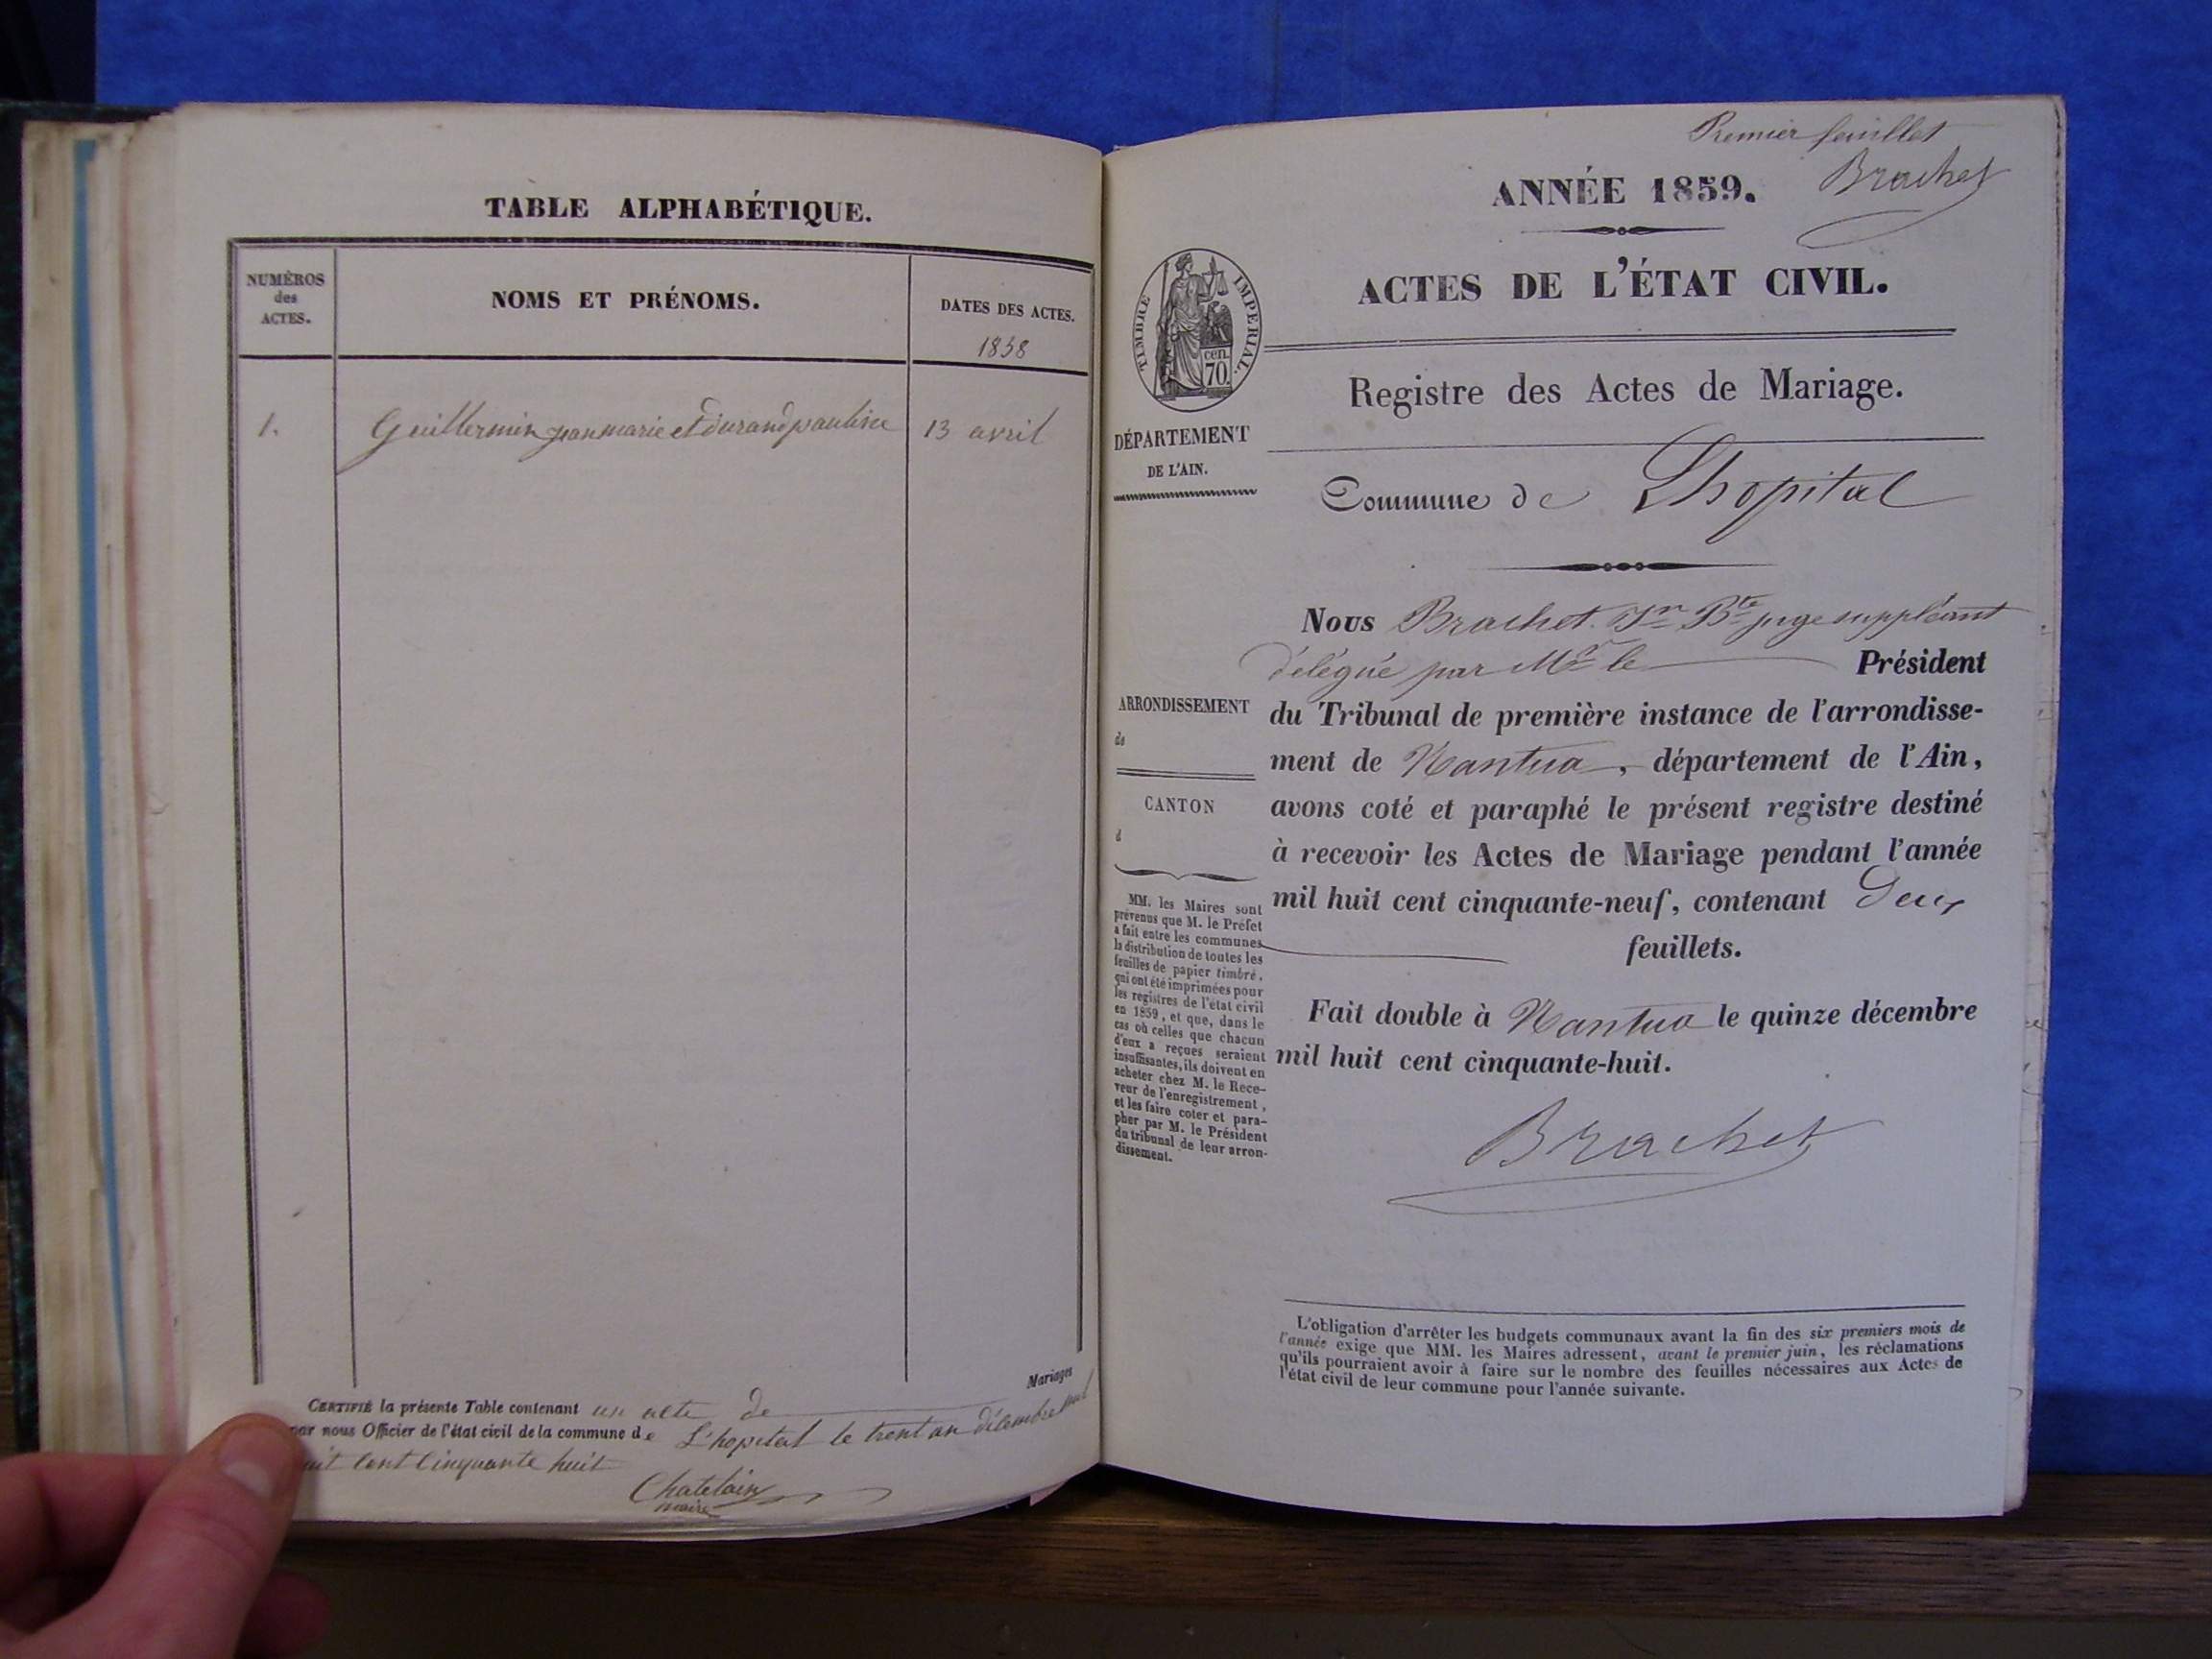 TABLE ALPHABÉTIQUE.
NUMÉROS
des
ACTES.
NOMS ET PRÉNOMS.
DATES DES ACTES.
1858
1. Guillermin jean marie et durand pauline 13 avril
CERTIFIÉ la présente Table contenant un acte de Mariages
par nous Officier de l'état civil de la commune de L'hopital le trent un décembre mil
huit cent Cinquante huit
Chatelain
maire
Premier feuillet
Brachet
ANNÉE 1859.
ACTES DE L'ÉTAT CIVIL.
TIMBRE IMPERIAL.
cen.
70.
Registre des Actes de Mariage.
DÉPARTEMENT
DE L'AIN.
Commune de Lhopital
Nous Brachet Jn Bte juge suppléant
délégué par Mr le Président
du Tribunal de première instance de l'arrondisse-
ment de Nantua, département de l'Ain,
avons coté et paraphé le présent registre destiné
à recevoir les Actes de Mariage pendant l'année
mil huit cent cinquante-neuf, contenant Deux
feuillets.
Fait double à Nantua le quinze décembre
mil huit cent cinquante-huit.
Brachet
ARRONDISSEMENT
de
CANTON
d
MM. les Maires sont
prévenus que M. le Préfet
a fait entre les communes
la distribution de toutes les
feuilles de papier timbré,
qui ont été imprimées pour
les registres de l'état civil
en 1859, et que, dans le
cas où celles que chacun
d'eux a reçues seraient
insuffisantes, ils doivent en
acheter chez M. le Rece-
veur de l'enregistrement,
et les faire coter et para-
pher par M. le Président
du tribunal de leur arron-
dissement.
L'obligation d'arrêter les budgets communaux avant la fin des six premiers mois de
l'année exige que MM. les Maires adressent, avant le premier juin, les réclamations
qu'ils pourraient avoir à faire sur le nombre des feuilles nécessaires aux Actes de
l'état civil de leur commune pour l'année suivante.